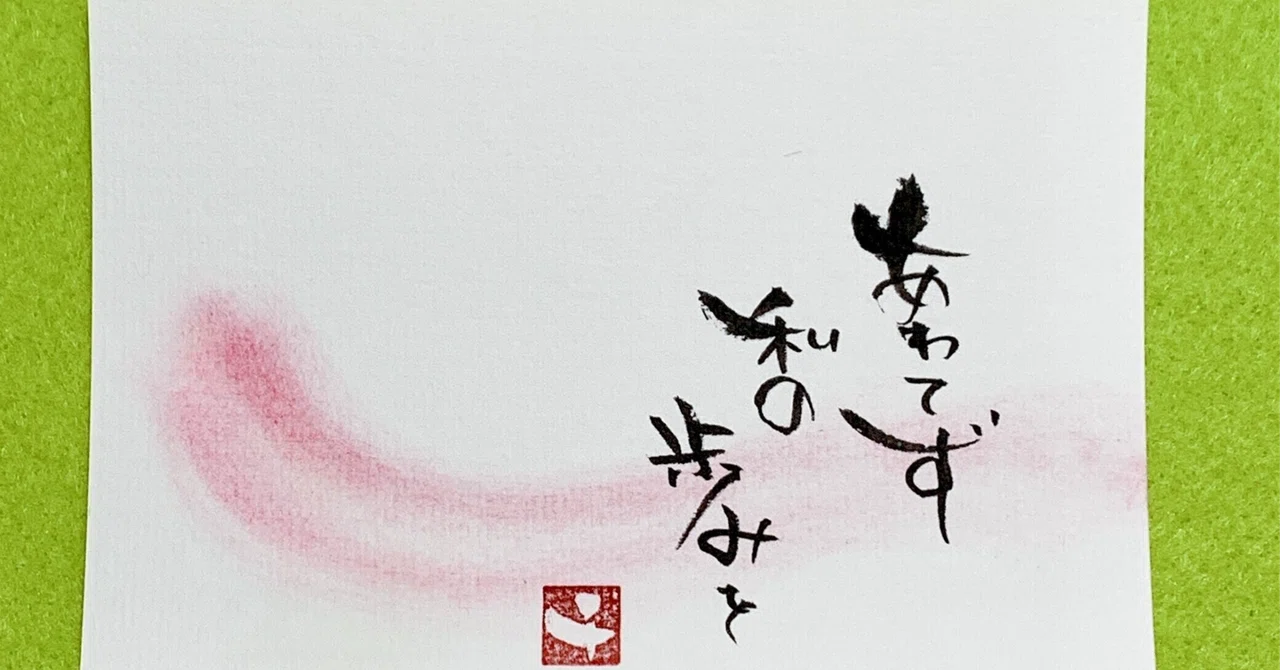 あわてず
私の
歩みを